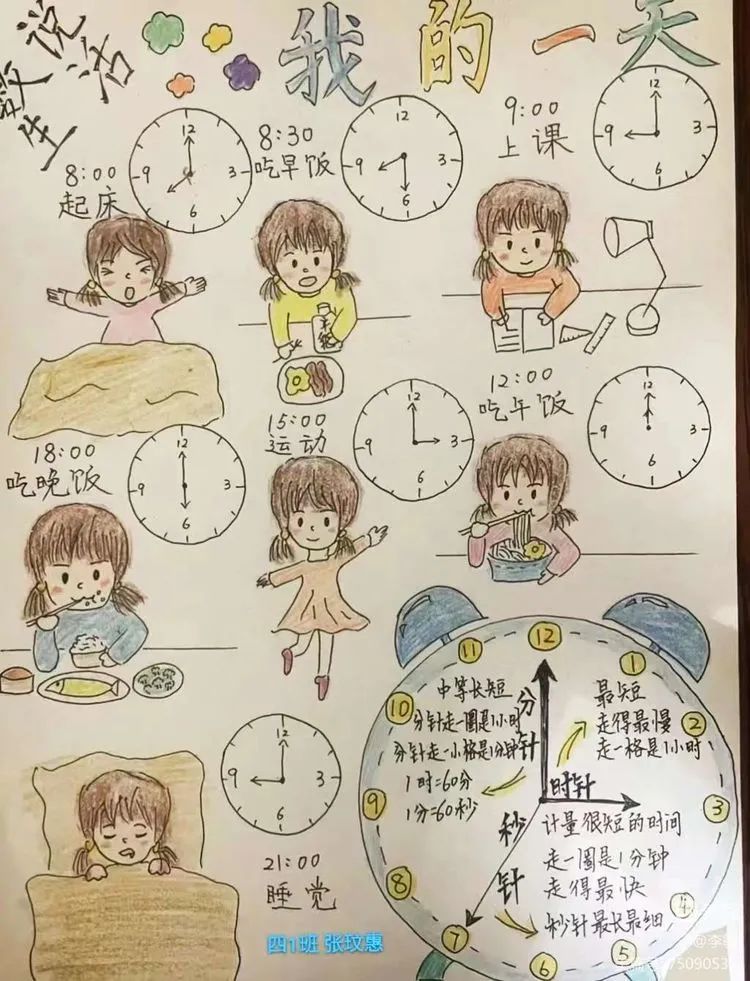 数说
生活
我的一天
8:00
起床
12
3
6
9
8:30
吃早饭
12
3
6
9
9:00
上课
12
3
6
9
18:00
吃晚饭
12
3
6
9
15:00
运动
12
3
6
9
12:00
吃午饭
12
3
6
9
21:00
睡觉
12
3
6
9
12
1
2
3
4
5
6
7
8
9
10
11
中等长短
分针走一圈是1小时
分针走一小格是1分钟
1时=60分
1分=60秒
分针
最短
走得最慢
走一格是1小时
时针
秒针
计量很短的时间
走一圈是1分钟
走得最快
秒针最长最细
四1班 张玟惠